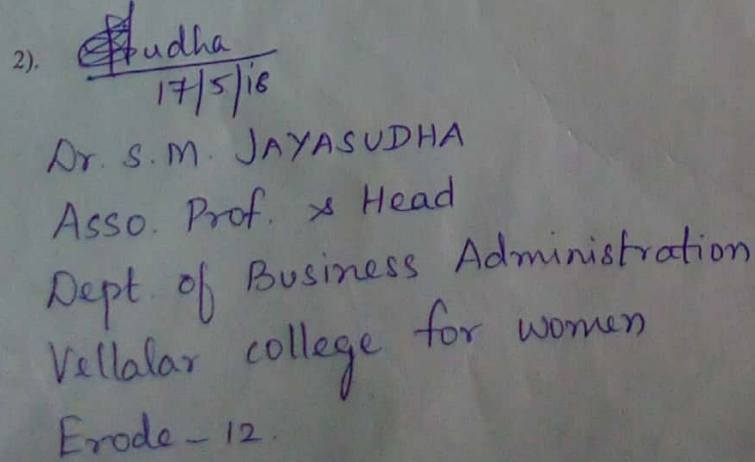 2). Sudha
17/5/18
Dr. S. M. JAYASUDHA
Asso. Prof. & Head
Dept. of Business Administration
Vellalar college for women
Erode - 12.